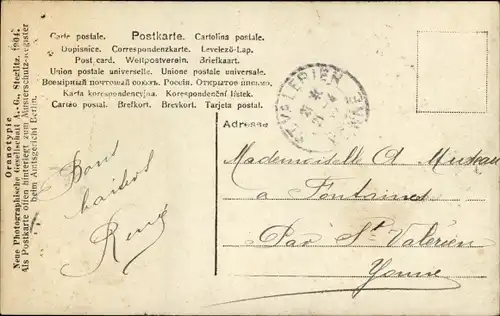 Carte postale. Postkarte. Cartolina postale.
Dopisnice. Correspondenzkarte. Levelező-Lap.
Post card. Weltpostverein. Briefkaart.
Union postale universelle. Unione postale universale.
Всемірный почтовый союзъ. Россія. Открытое письмо.
Karta korespondencyjna. Korespondenční lístek.
Cartão postal. Brefkort. Brevkort. Tarjeta postal.
Oranotypie
Neue Photographische Gesellschaft A.-G., Steglitz. 1904.
Als Postkarte offen hinterlegt zum Musterschutz-Register
beim Amtsgericht Berlin.
Bons
baisers
René
ST VALERIEN
YONNE
Adresse
Mademoiselle A
a Fontaines
Par St Valerien
Yonne